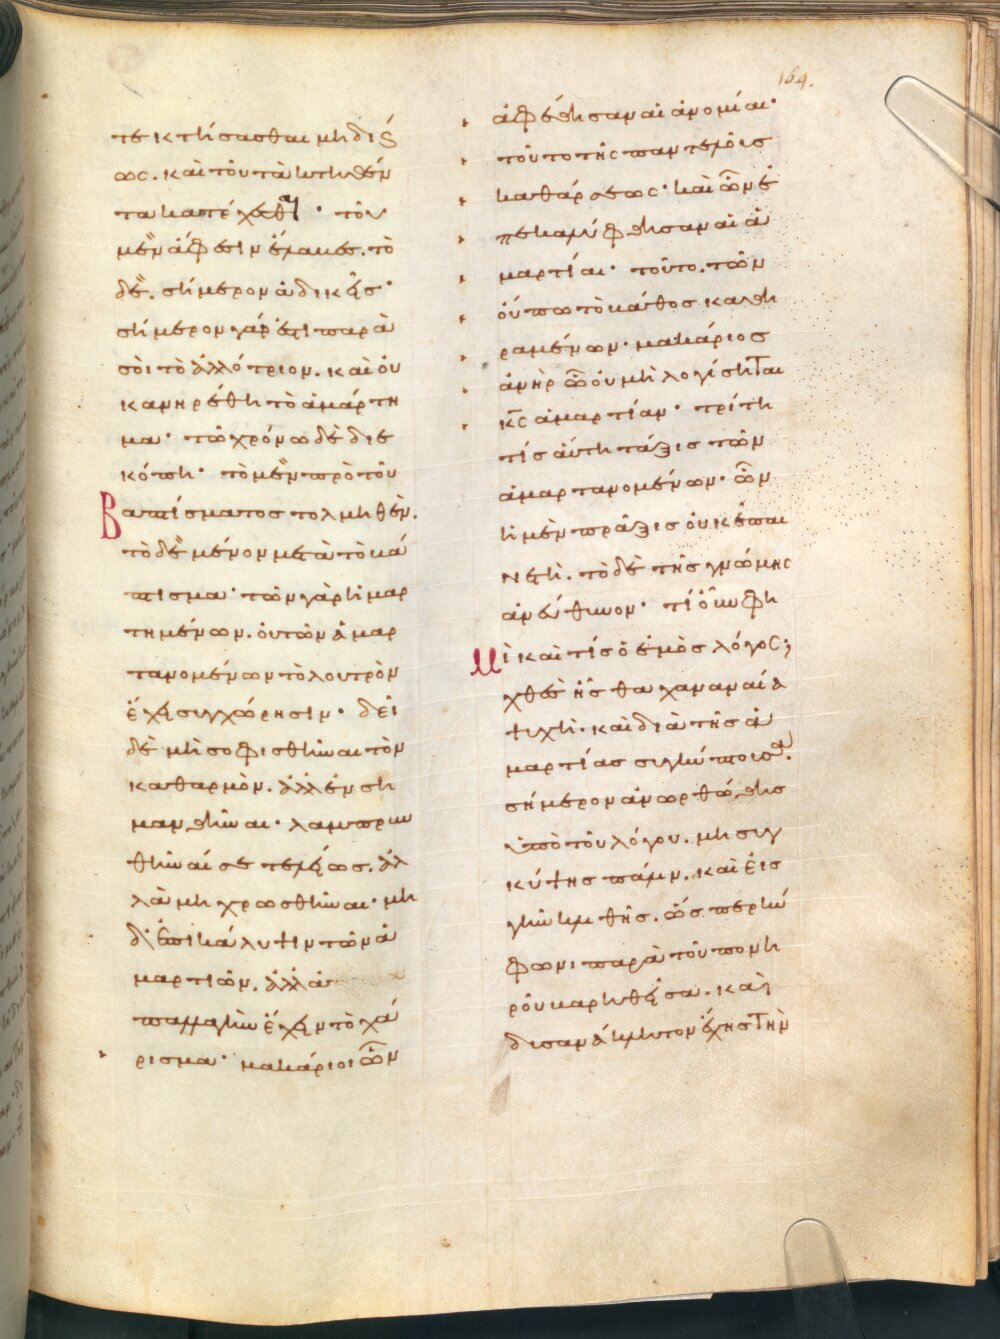 164.
τε κτήσασθαι μὴ δικαί
ως. καὶ τοῦτὰ κτηθέν
τα κατέχεσθαι · τὸν
μὲν ἄφεσιν ἔλαβες. τὸ
δὲ. σήμερον ἀδικεῖς ·
σήμερον γάρ ἐστι παρὰ
σοὶ τὸ ἀλλότριον. καὶ οὐ
κ ἀνηρέθη τὸ ἁμάρτη
μα · τῶ χρόνω δὲ διε
κόπη · τὸ μὲν πρὸ τοῦ
Βαπτίσματος τολμηθὲν.
τὸ δὲ μένον μετὰ τὸ βά
πτισμα · τῶν γὰρ ἡμαρ
τημένων. οὐ τῶν ἁμαρ
τανομένων τὸ λουτρὸν
ἔχει συγχώρησιν · δεῖ
δὲ μὴ σοφισθῆναι τὸν
καθαρμὸν. ἀλλ ἐνση
μανθῆναι · λαμπρυν
θῆναί σε τελείως. ἀλ
λὰ μὴ χρωσθῆναι · μὴ
δ' ἐπικάλυψιν τῶν ἁ
μαρτιῶν. ἀλλ ἀ
παλλαγὴν ἔχειν τὸ χά
ρισμα · μακάριοι ὧν
ἀφέθησαν αἱ ἀνομίαι ·
τοῦτο τῆς παντελοῖς
καθάρσεως · καὶ ὧν ἐ
πεκαλύφθησαν αἱ ἁ
μαρτίαι · τοῦτο. τῶν
οὔπω τὸ βάθος καθη
ραμένων · μακάριος
ἀνὴρ ὧ οὐ μὴ λογίσηται
κς ἁμαρτίαν · τρίτη
τίς αὕτη τάξις τῶν
ἁμαρτανομένων · ὧν
ἡ μὲν πρᾶξις οὐκ ἐπαι
νετὴ. τὸ δὲ τῆς γνώμης
ἀνεύθυνον · τί οὖν φη
μὶ καὶ τίς ὁ ἐμὸς λόγος;
χθὲς ἦσθα χαναναία
ψυχὴ · καὶ διὰ τῆς ἁ
μαρτίας συγκύπτουσα.
σήμερον ἀνωρθώθης
ὑπὸ τοῦ λόγου. μὴ συγ
κύψης πάλιν. καὶ εἰς
γῆν κλιθῆς. ὡς περ κλύ
φωνι παρὰ τοῦ πονη
ροῦ βαρηθεῖσα. καὶ
δυσανάκλυτον ἔχης τὴν